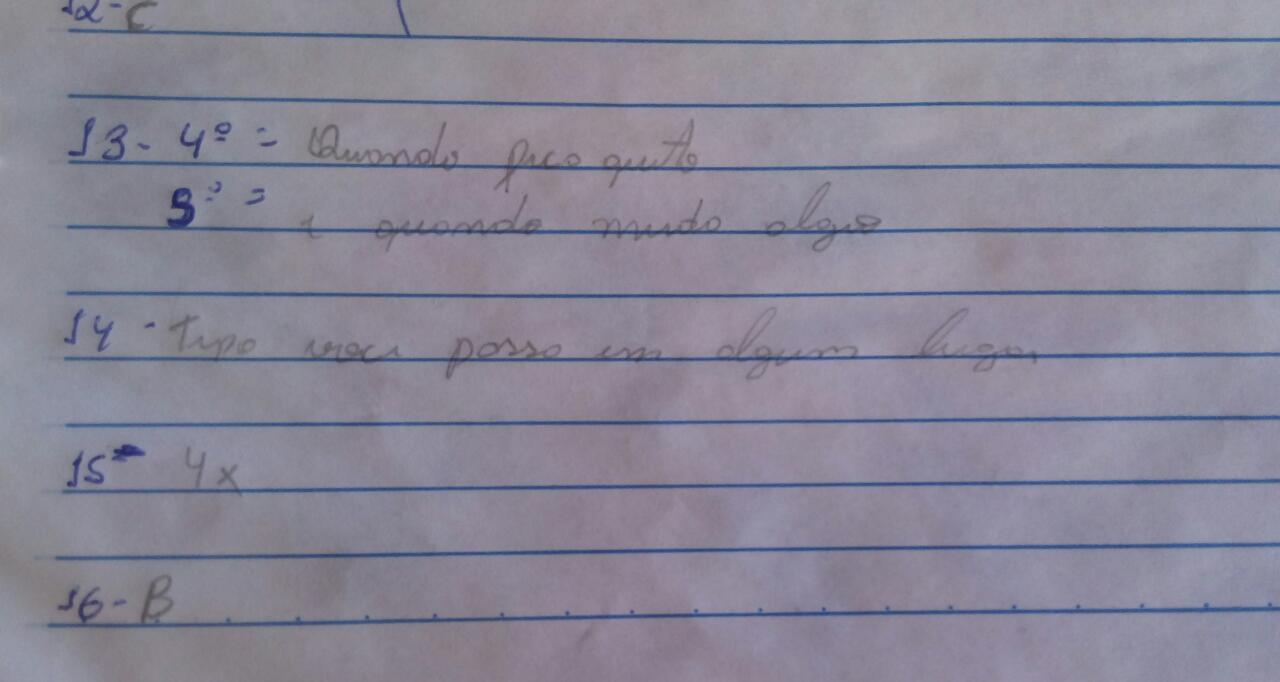 12-C
13- 4º = Quando fico quito
3º =
i quando mudo algo
14 - tipo voce posso em algum lugar
15- 4x
16- B